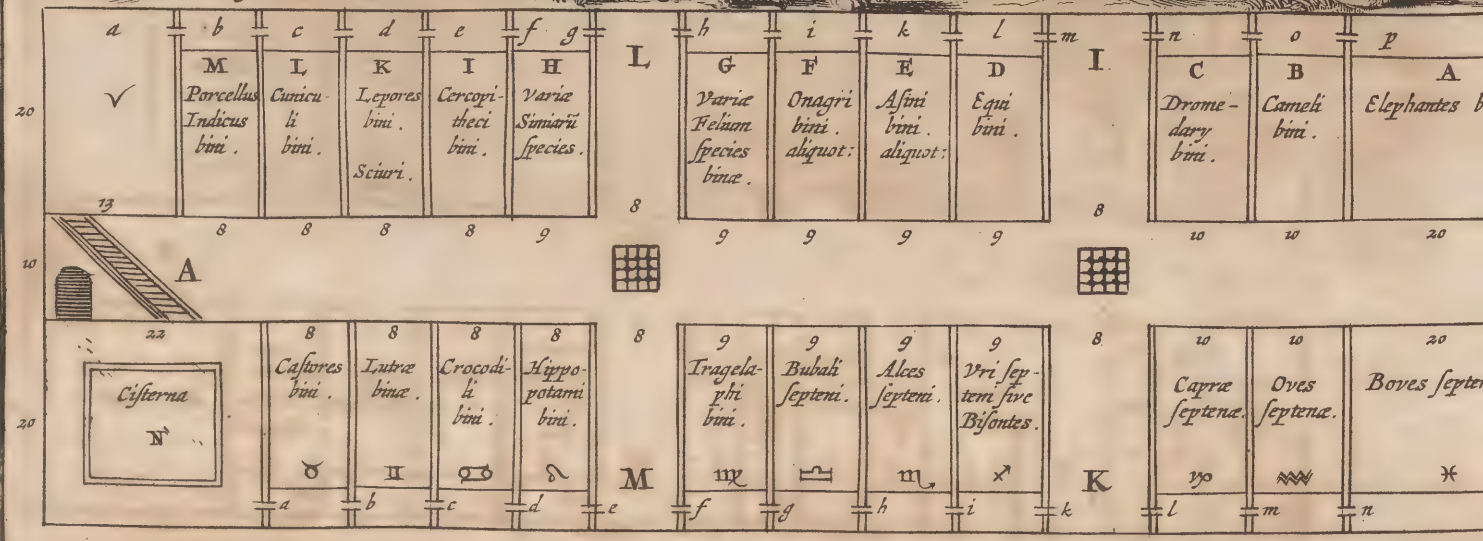 a b c d e f g h i k l m n o p
M L K I H L G F E D I C B A
20
✓
Porcellus
Indicus
bini.
Cunicu-
li
bini.
Lepores
bini.
Sciuri.
Cercopi-
theci
bini.
Variæ
Simiarū
ſpecies.
Variæ
Felium
ſpecies
binæ.
Onagri
bini.
aliquot:
Aſini
bini.
aliquot:
Equi
bini.
Drome-
dary
bini.
Cameli
bini.
Elephantes b
13 8 8 8 8 9 8 9 9 9 9 8 10 10 20
10
A
22 8 8 8 8 8 9 9 9 9 8 10 10 20
20
Ciſterna
N
Caſtores
bini.
♉
Lutræ
binæ.
♊
Crocodi-
li
bini.
♋
Hippo-
potami
bini.
♌
M
Tragela-
phi
bini.
♍
Bubali
ſepteni.
♎
Alces
ſepteni.
♏
Vri ſep-
teni ſive
Biſontes.
♐
K
Capræ
ſeptenæ.
♑
Oves
ſeptenæ.
♒
Boves ſepten
♓
a b c d e f g h i k l m n